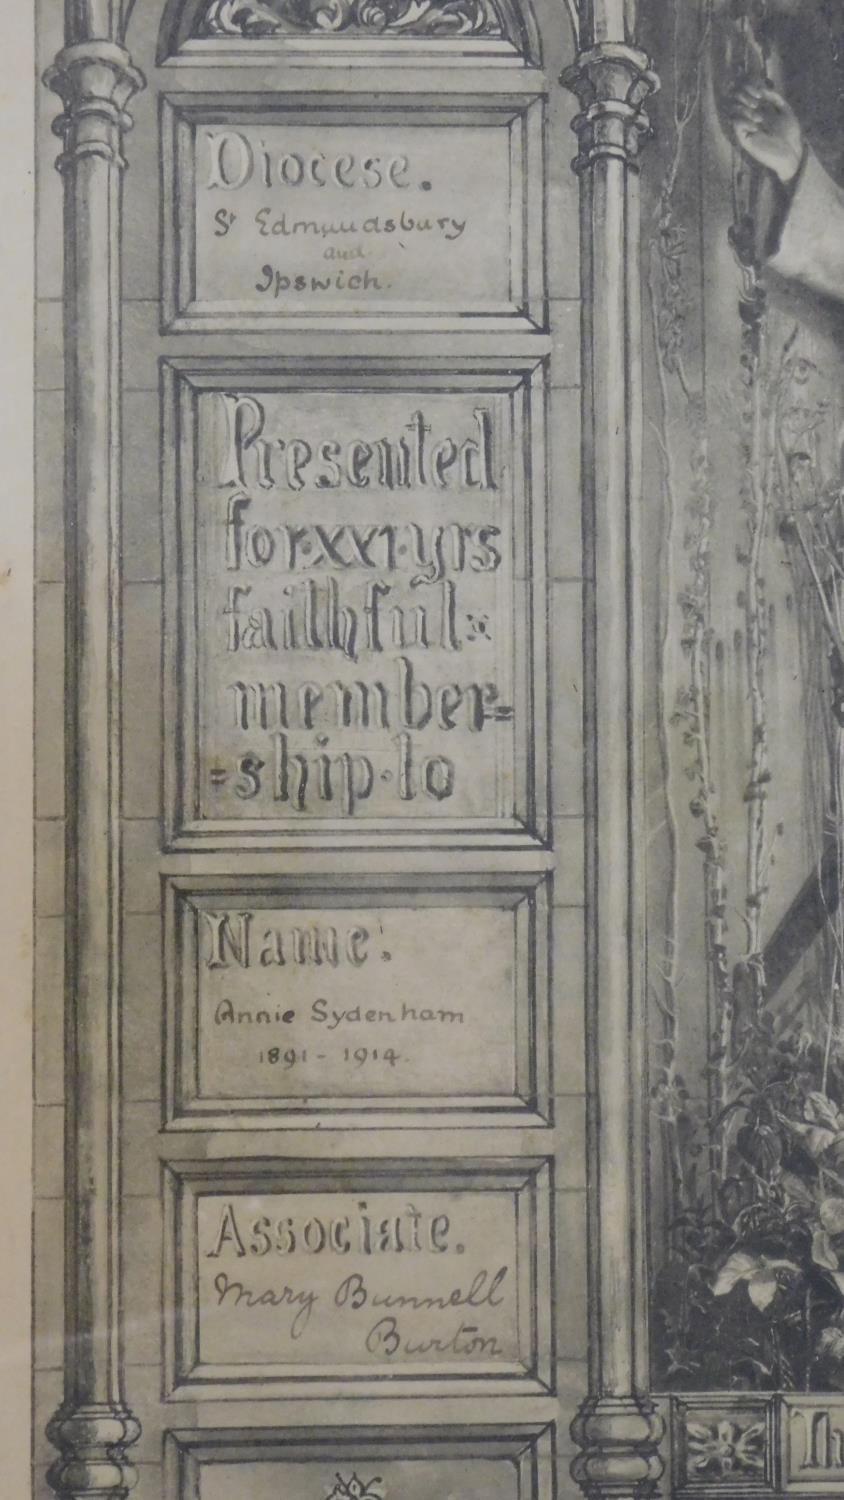 Diocese.
St Edmundsbury
and
Ipswich.
Presented
for·xxi·yrs
faithful
member=
=ship·to
Name.
Annie Sydenham
1891 - 1914.
Associate.
Mary Bunnell
Burton